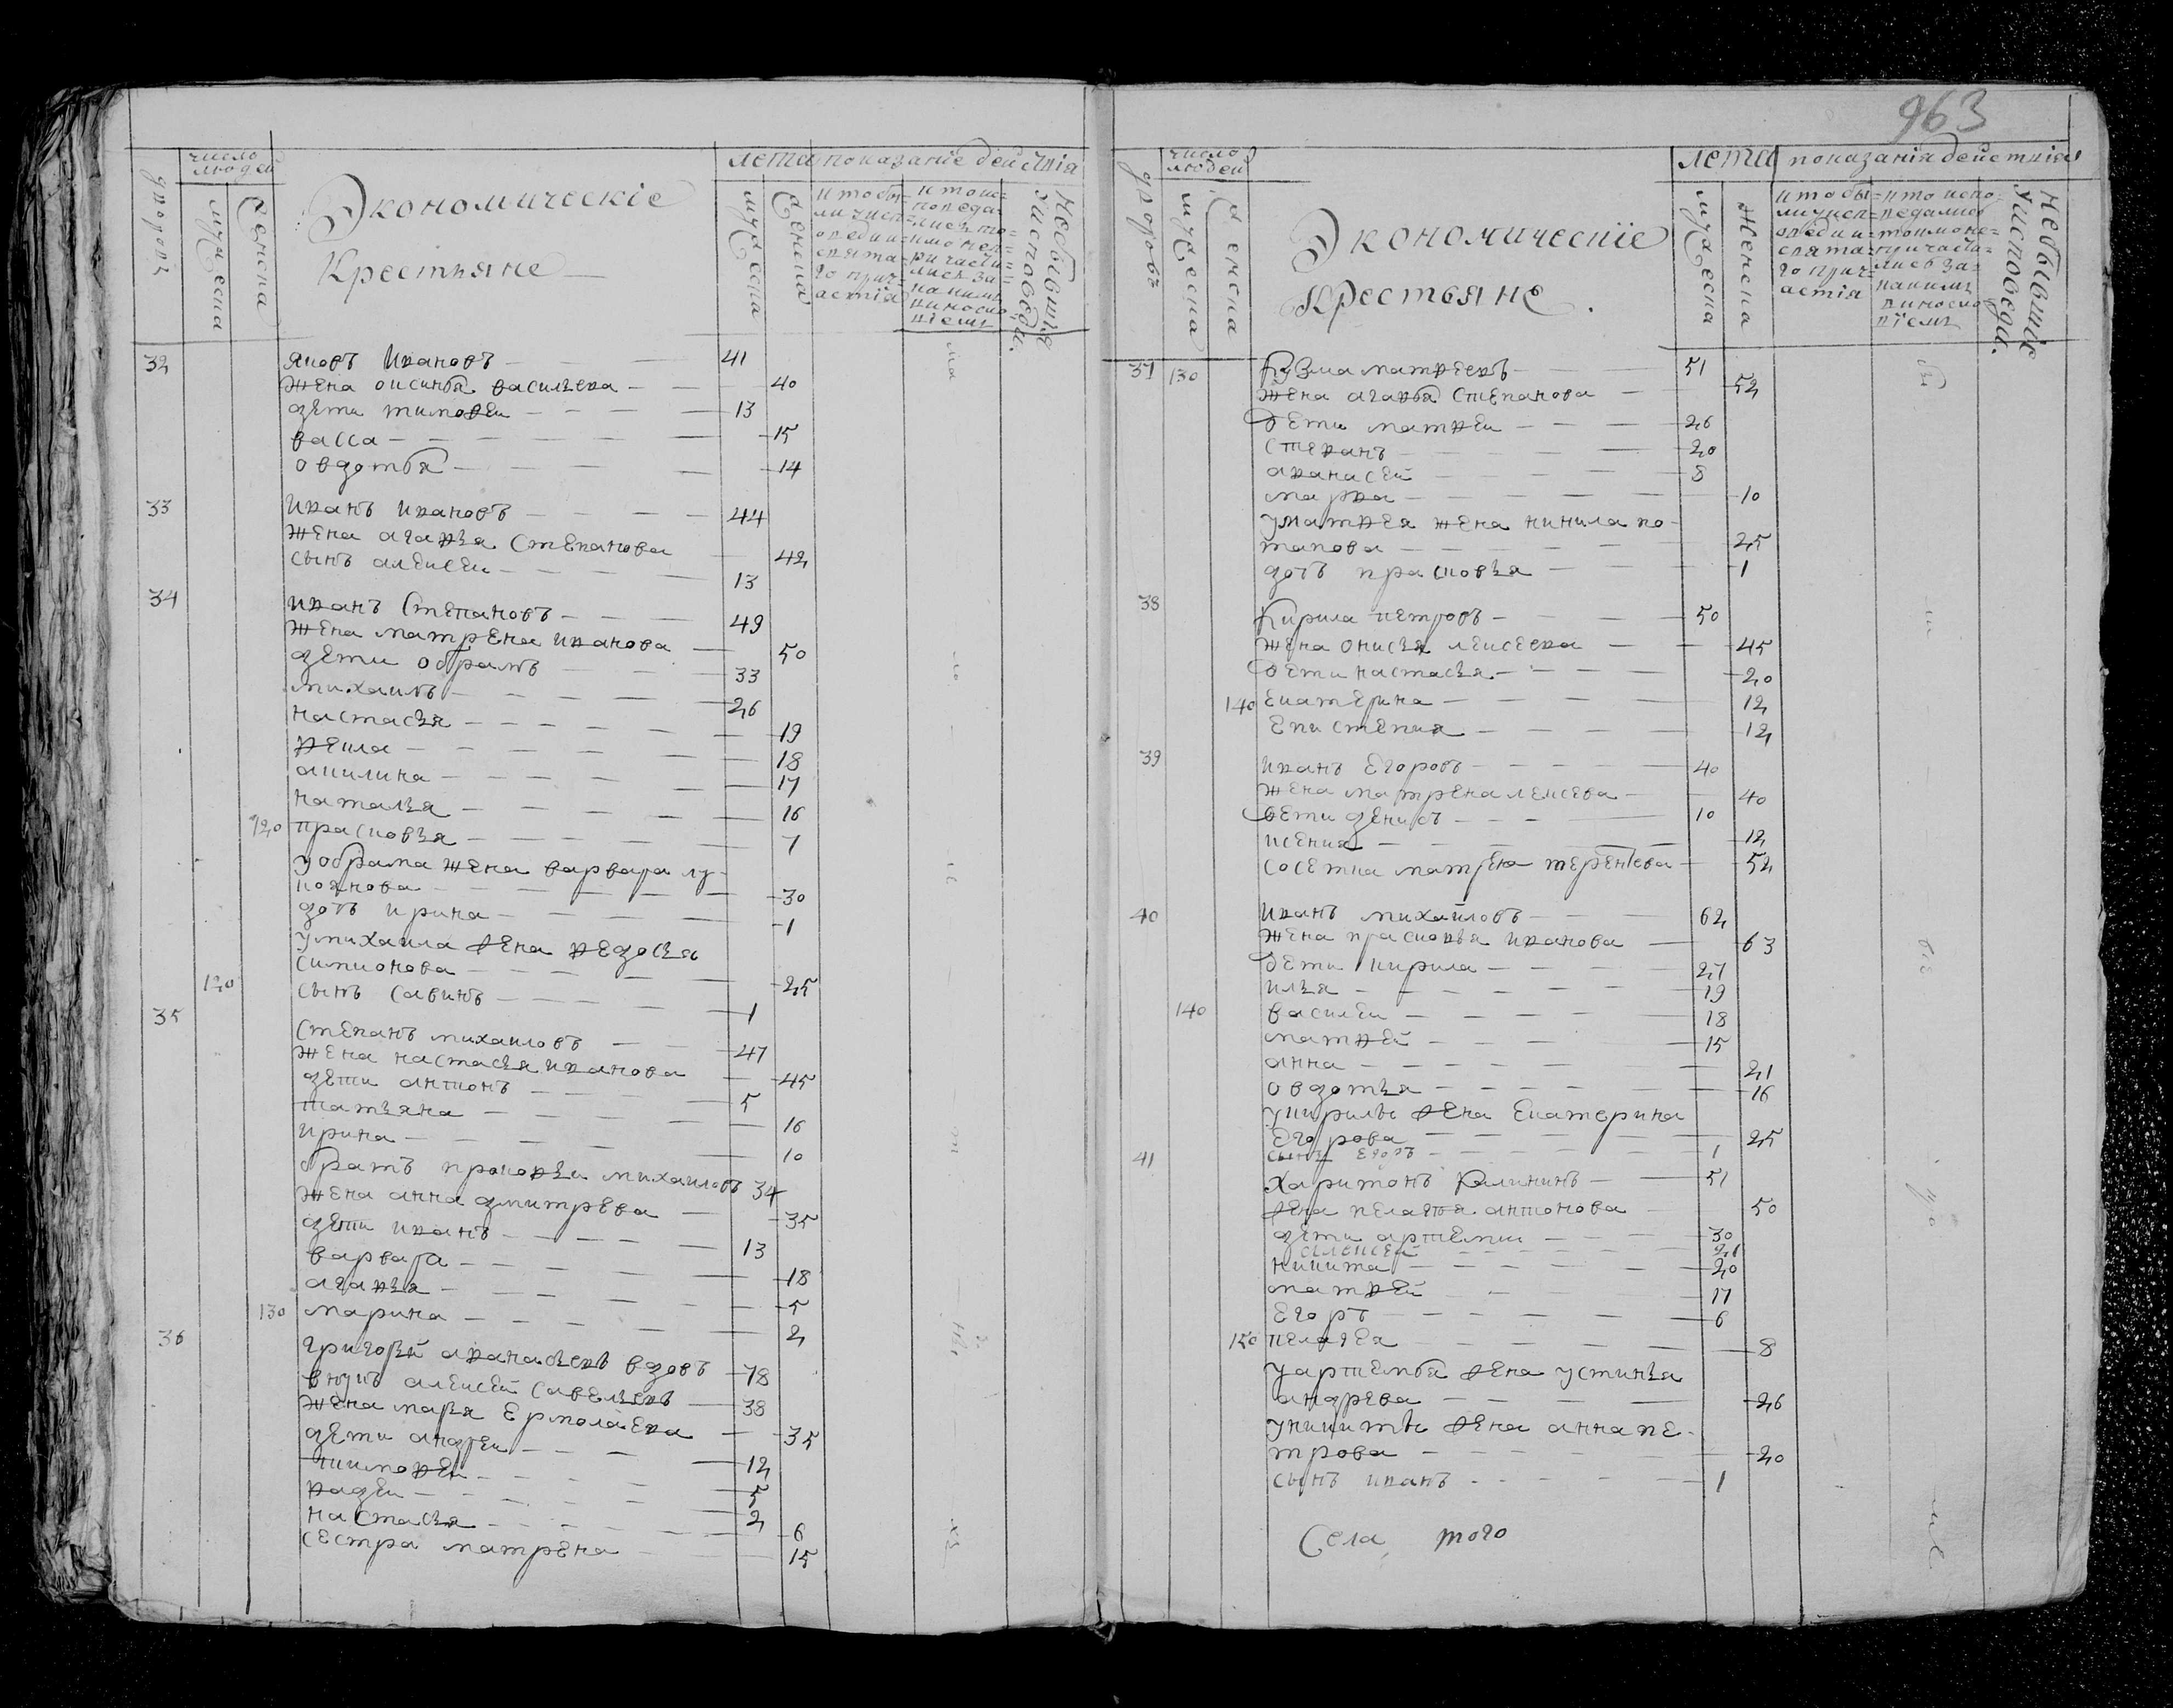 963
число людей
лета показание действiя
дворовъ
мужеска
женска
Экономическiе
Крестьяне
мужеска
женска
кто бы-
ли у исп-
оведи и
свята-
го прич-
астiя
кто ис-
поведа-
лись то-
кмо не п-
ричасти-
лись за
каким
виносло-
вiемъ
Небывшiе у исповеди.
32 яковъ Ивановъ 41
жена аксинья васильева 40
дети тимофеи 13
васса 15
овдотья 14
33 Иванъ Ивановъ 44
жена агафья Степанова 42
сынъ алексеи 13
34 иванъ Степановъ 49
жена матрена иванова 50
дети обрамъ 33
михаилъ 26
настасья 19
фекла 18
акилина 17
наталья 16
120 прасковья 7
у обрама жена варвара лу-
коянова 30
дочь ирина 1
у михаила жена федосья
симионова 25
120 сынъ савинъ 1
35 Степанъ михаиловъ 47
жена настасья иванова 45
дети антонъ 5
татьяна 16
ирина 10
братъ прокофеи михаиловъ 34
жена анна дмитрева 35
дети иванъ 13
варвара 18
агафья 5
130 марина 2
36 григорей афанасьевъ вдовъ 78
внукъ алексей савельевъ 38
жена марья Ермолаева 35
дети андреи 12
тимофеи 5
фадеи 2
настасья 6
сестра матрена 15
число людей
лета показанiя действiя
дворовъ
мужеска
женска
Экономическiе
Крестьяне.
мужеска
женска
кто бы-
ли у исп-
оведи и
свята-
го прич-
астiя
кто испо-
ведались
токмо не
причасти-
лись за
каким
виносло-
вiемъ
Небывшiе у исповеди.
37 130 Кузма матвеевъ 51
жена агафья Степанова 52
дети матвеи 26
Стефанъ 20
афанасей 8
марфа 10
у матвея жена нинила по-
тапова 25
дочь прасковья 1
38 Кирила петровъ 50
жена онисья лексеева 45
дети настасья 20
140 Екатерина 12
Епистемия 12
39 иванъ Егоровъ 40
жена матрена лексева 40
дети денисъ 10
ксения 12
соседка матрена терентева 52
40 иванъ михайловъ 62
жена прасковья иванова 63
дети кирила 27
илья 19
140 василеи 18
матвей 15
анна 21
овдотья 16
у кирилы жена Екатерина
Егорова 25
сынъ Егоръ 1
41 харитонъ Калининъ 51
жена пелагея антонова 50
дети артемии 30
алексей 21
никита 20
матвей 17
Егоръ 6
150 пелагея 8
у артемья жена устинья
андрева 26
у никиты жена анна пе-
трова 20
сынъ иванъ 1
Села того